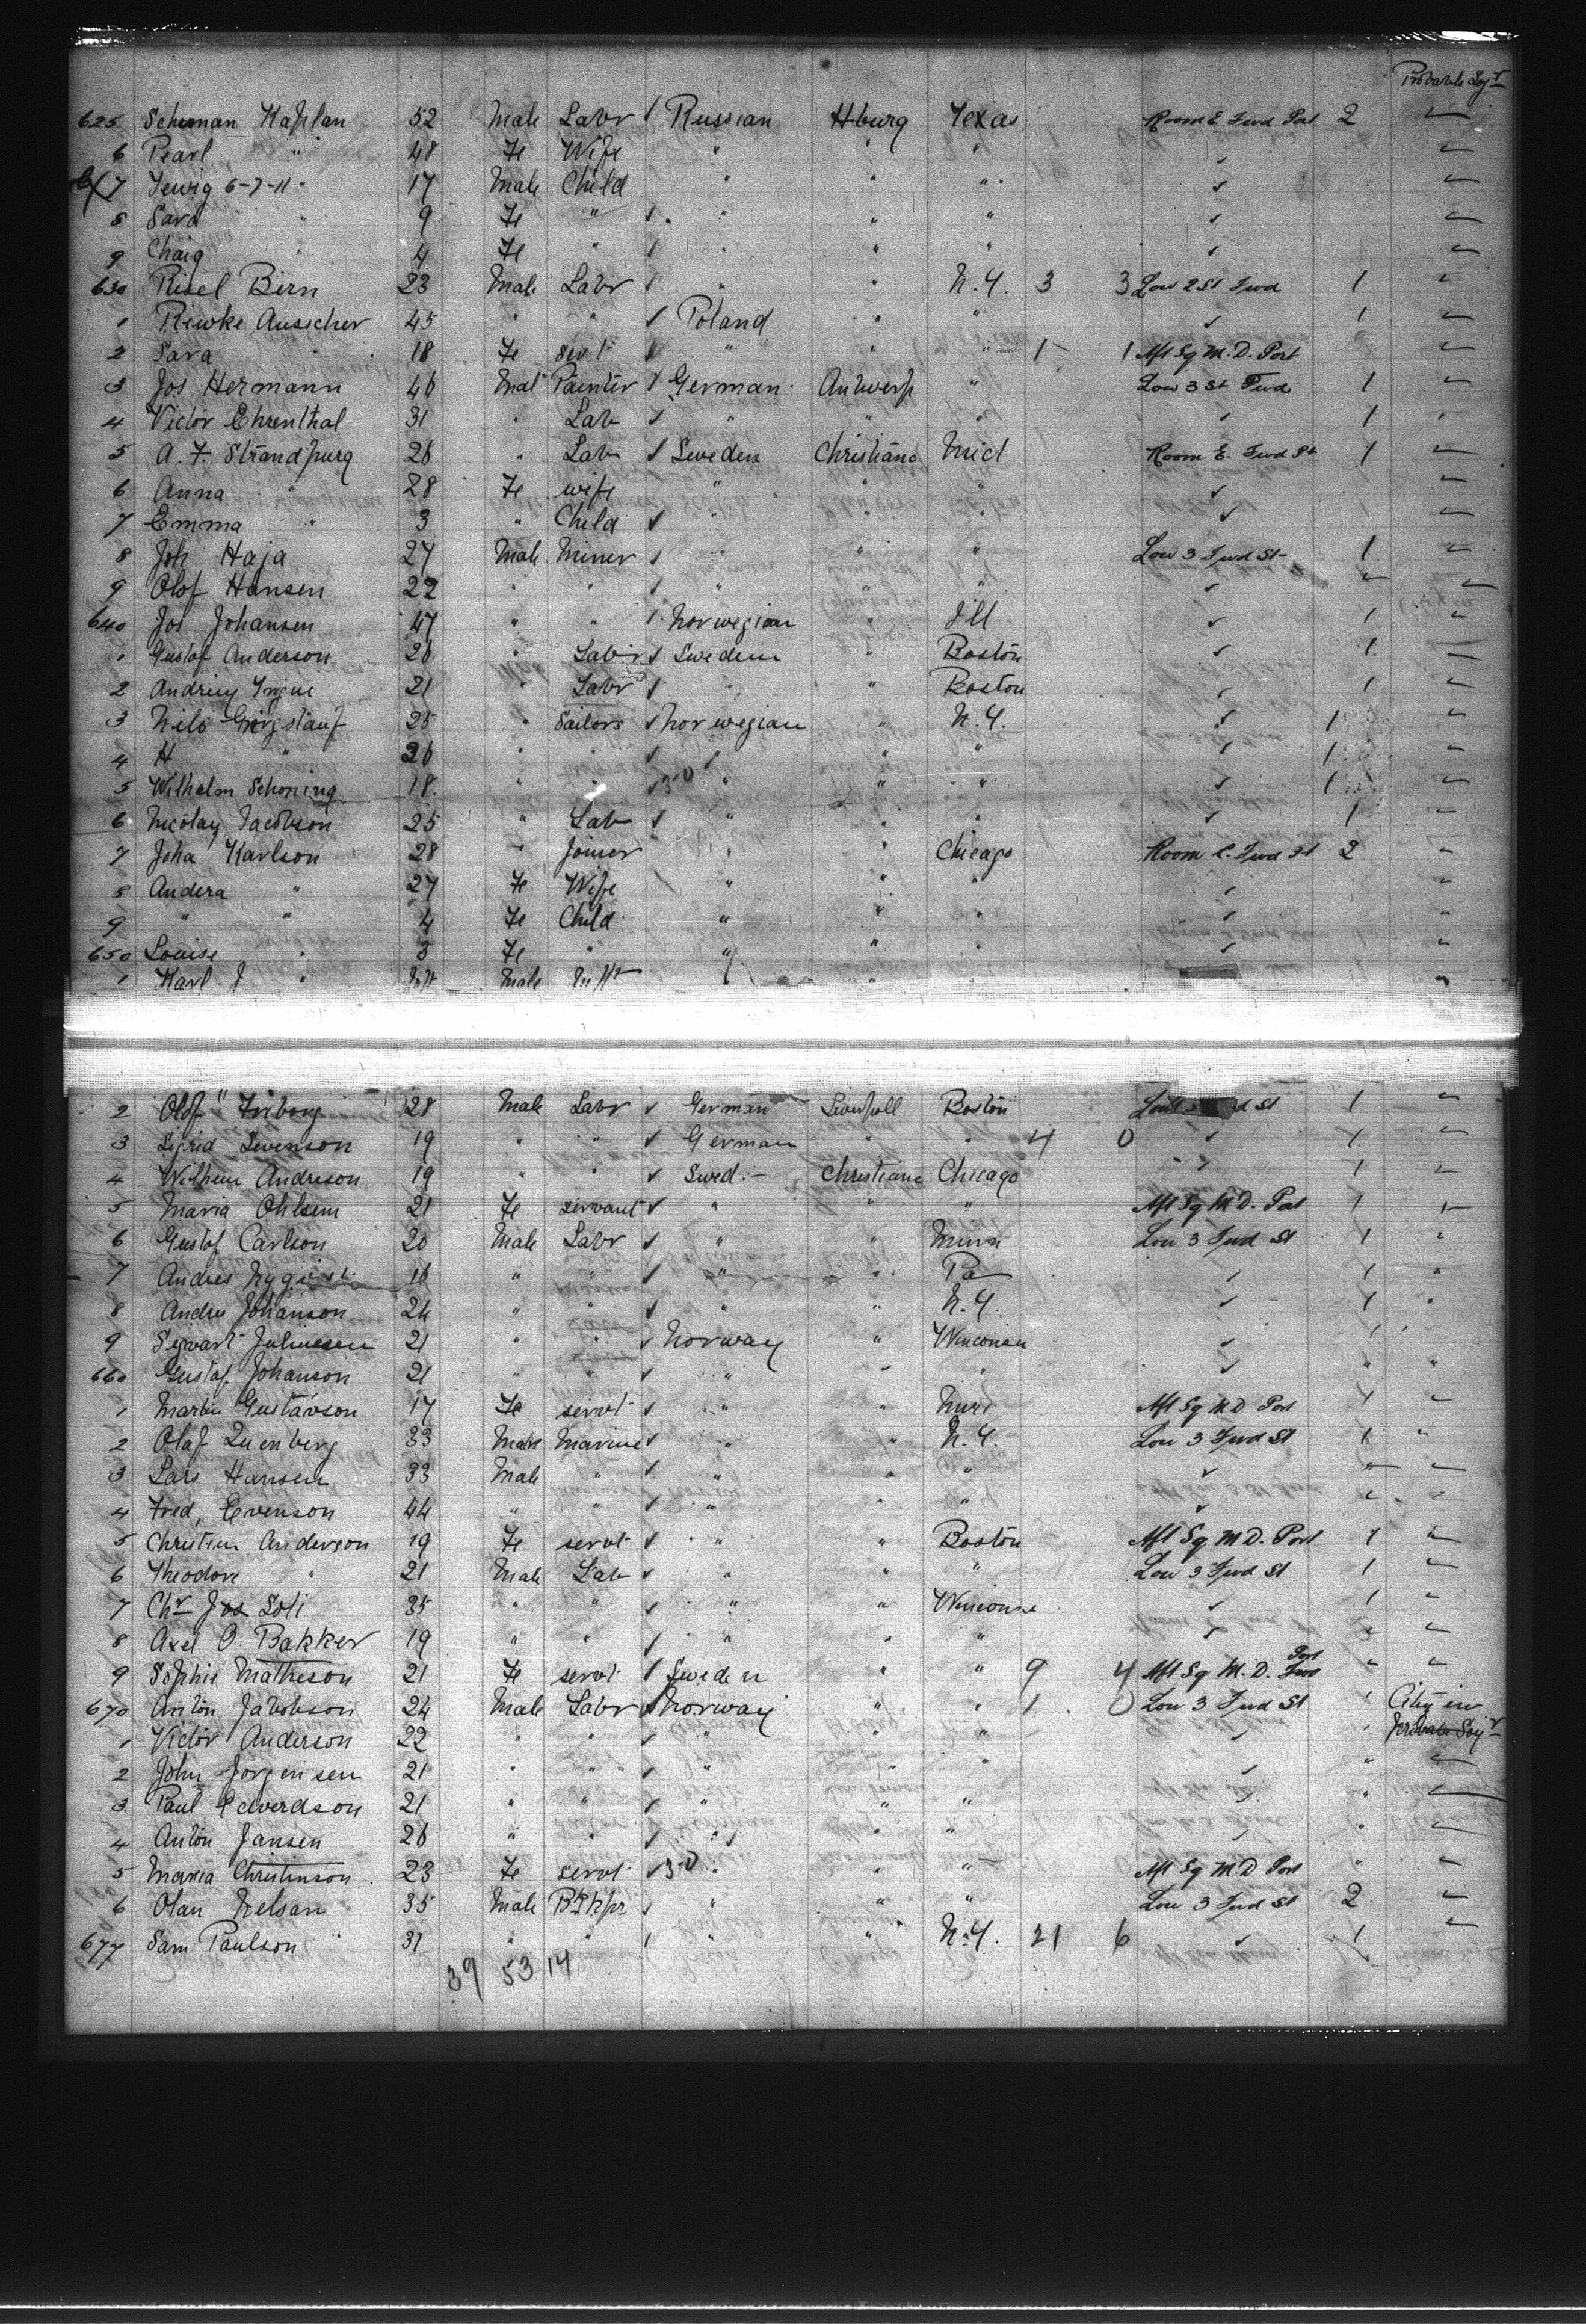 Probable Soj r
625 Scheman Kaplan 52 Male Labr / Russian Hburg Texas Room E Fwd Port 2 "
6 Pearl " 48 Fe Wife " " " ✓ "
7 6-7-11 " 17 Male Child " " " ✓ "
8 Sara " 9 Fe " / " " " ✓ "
9 Chaig " 4 Fe " / " " " ✓ "
630 Risel Birn 23 Male Labr / " " N.Y. 3 3 Low 2 St Fwd 1 "
1 Riwke Ausscher 45 " " ✓ Poland " " ✓ 1 "
2 Sara " 18 Fe servt ✓ " " " 1 1 Aft Sq M.D. Port "
3 Jos Hermann 46 Mal Painter ✓ German Antwerp " Low 3 St Fwd 1 "
4 Victor Ehrenthal 31 " Lab ✓ " " " ✓ 1 "
5 A. F. Strandpurg 26 " Lab ✓ Sweden Christiana Mich Room E. Fwd Pt 1 "
6 Anna " 28 Fe wife " " " ✓ "
7 Emma " 3 " Child ✓ " " " ✓ "
8 Joh Haja 27 Male Miner / " " " Low 3 Fwd St 1 "
9 Olof Hansen 22 " " / " " " ✓ " "
640 Jos Johansen 47 " " / Norwegian " Ill ✓ 1 "
1 Gustaf Anderson 26 " Labr ✓ Sweden " Boston ✓ 1
2 21 " Labr / " " Boston ✓ 1 "
3 Nils 25 " Sailors ✓ Norwegian " N.Y. ✓ 1 "
4 H " 26 " " ✓ " " " ✓ 1 "
5 Wilhelm Schoning 18 " " 30 " " " ✓ 1 "
6 Nicolay Jacobson 25 " Lab ✓ " " " ✓ 1 "
7 Joha Karlson 28 " Joiner " " Chicago Room E. Fwd St 2 "
8 Andera " 27 Fe Wife / " " " ✓ "
9 " " 4 Fe Child " " " ✓ "
650 Louise " 3 Fe " " " " ✓ "
1 Karl J " Male "
2 Olof Friborg 28 Male Labr ✓ German Liverpoll Boston St 1 "
3 Sigrid Svenson 19 " " ✓ German " " 4 0 ✓ 1 "
4 Wilhem Andreson 19 " " ✓ Swed. Christiana Chicago ✓ 1 "
5 Maria Ohlsem 21 Fe servant ✓ " " " Aft Sq M.D. Port 1 "
6 Gustaf Carlson 20 Male Labr ✓ " " Minn Low 3 Fwd St 1 "
7 Andres 16 " " ✓ " " Pa ✓ 1 "
8 Andru Johanson 24 " " ✓ " " N.Y. ✓ 1 "
9 Sigwart Juliussen 21 " " ✓ Norway " Winconsn ✓ 1
660 Gustaf Johanson 21 " " ✓ " " " ✓ " "
1 Martin Gustavson 17 Fe servt ✓ " " Aft Sq M.D Port 1 "
2 Olaf Quenberg 33 Male Marine ✓ " " N.Y. Low 3 Fwd St 1 "
3 Lars Hansen 33 Male " ✓ " " " ✓ " "
4 Fred, Evenson 44 " " ✓ " " " ✓ " "
5 Christian Anderson 19 Fe servt ✓ " " Boston Aft Sq M.D. Port 1 "
6 Theodore " 21 Male Lab ✓ " " " Low 3 Fwd St 1 "
7 Chr Jos Soli 35 " " ✓ " " ✓ 1 "
8 Axel O. Bakker 19 " " ✓ " " " ✓ " "
9 Sophie Matheson 21 Fe servt / Sweden " " 9 4 Aft Sq M.D. Fwd Port " "
670 Anton Jacobson 24 Male Labr ✓ Norway " " 1 0 Low 3 Fwd St " City in
1 Victor Anderson 22 " " ✓ " " " ✓ " probable Soj r
2 John Jorgensen 21 " " ✓ " " " ✓ " "
3 Paul Edverdson 21 " " ✓ " " " ✓ " "
4 Anton Jansen 26 " " ✓ " " " ✓ " "
5 Maria Christinson 23 Fe servt ✓ 30 " Aft Sq M.D Port " "
6 Olan Nelsan 35 Male Bkkpr ✓ " " " Low 3 Fwd St 2 "
677 Sam Paulson 31 " " / " " N.Y. 21 6 ✓ 1 "
39 53 14